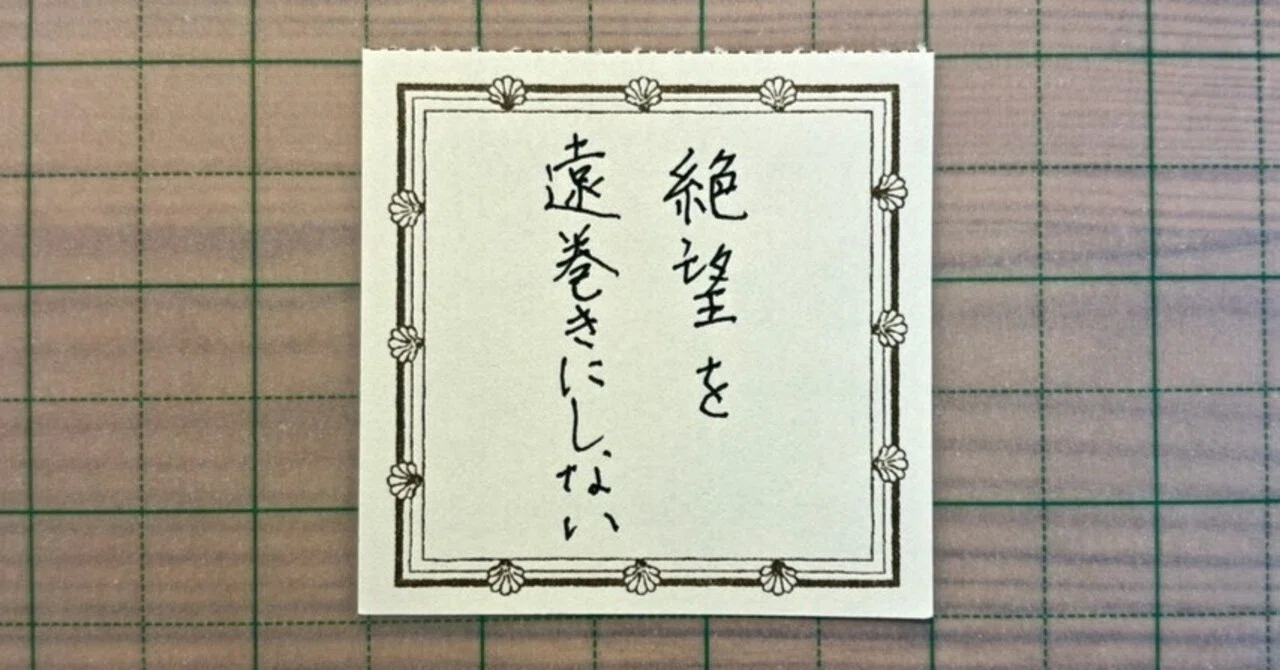 絶望を
遠巻きにしない